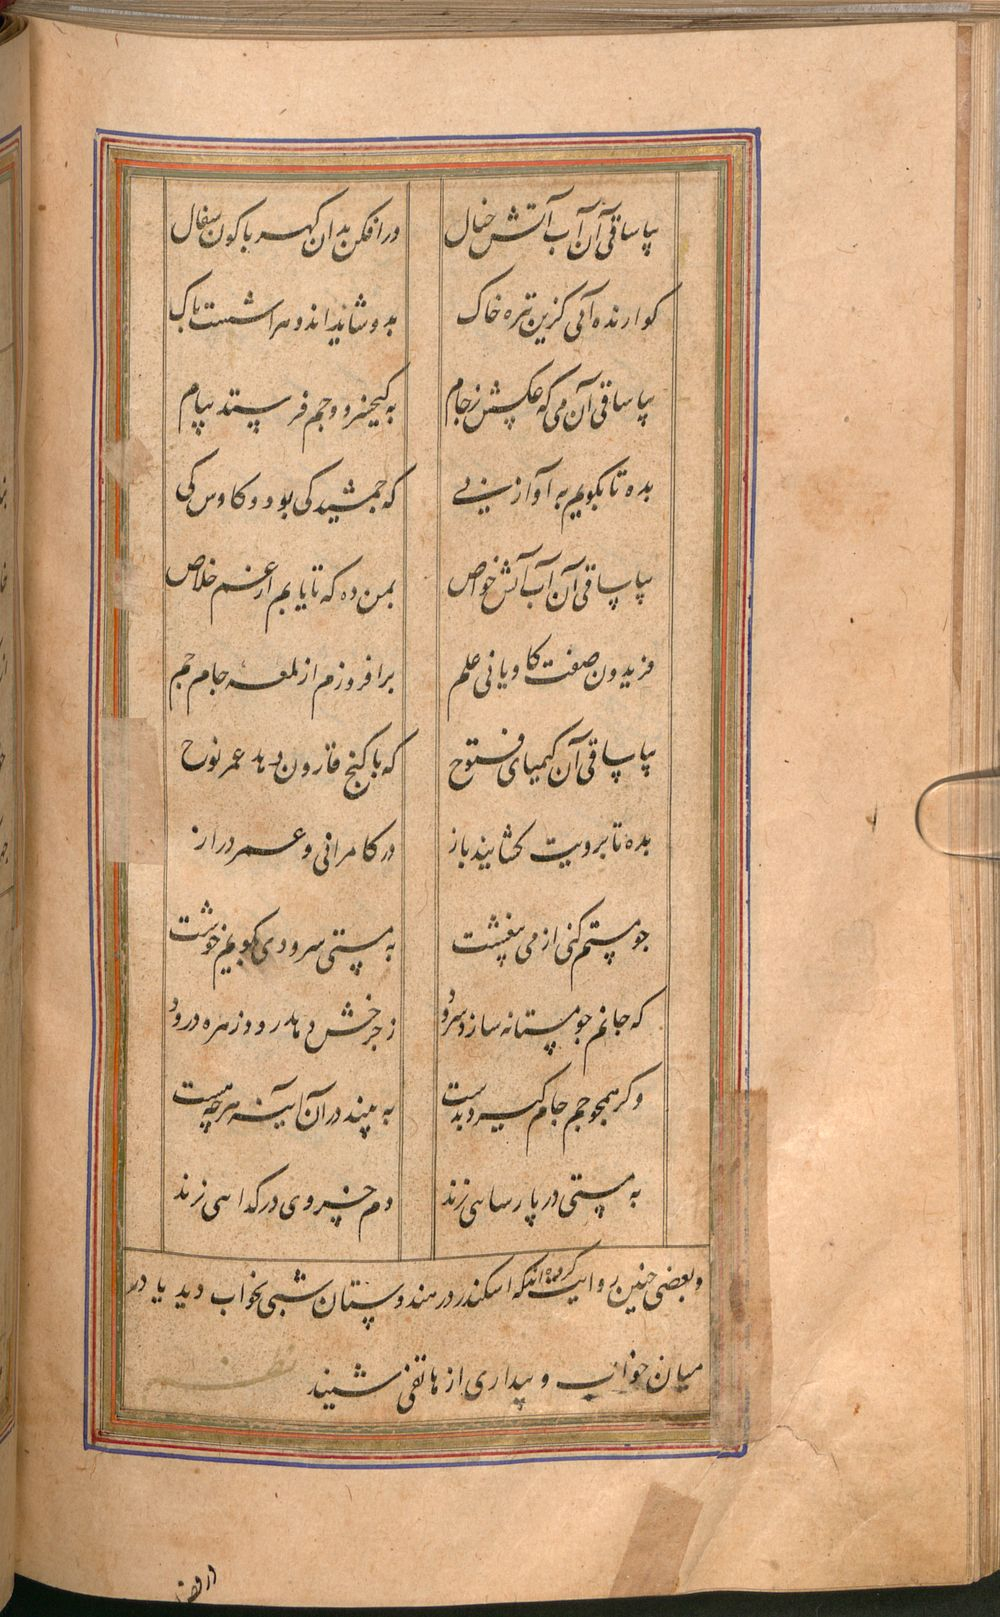 بیا ساقی آن آب آتش خیال در افکن بدان کهربا کون سفال
کوارنده آبی کزین تیره خاک بدو شاید اندوه را شست پاک
بیا ساقی آن می که عکسش ز جام به کیخسرو و جم فرستد پیام
بده تا بکویم به آواز نی که جمشید کی بود و کاوس کی
بیا ساقی آن آب آتش خواص بمن ده که تا یابم از غم خلاص
فریدون صفت کاویانی علم برافروزم از لمعهٔ جام جم
بیا ساقی آن کیمیای فتوح که با کنج قارون دهد عمر نوح
بده تا برویت کشایند باز در کامرانی و عمر دراز
جو مستم کنی از می بیغشت به مستی سرودی کویم خوشت
که جانم جو مستانه سازد سرود ز جرخش دهد رود زهره درود
وکر همجو جم جام کیرد بدست به بیند در آن آینه هر چه هست
به مستی در پارسایی زند دم خسروی در کدایی زند
و بعضی جنین روایت کرده‌اند که اسکندر در هندوستان شبی بخواب دید یا در
میان خواب و بیداری از هاتفی شنید نظم